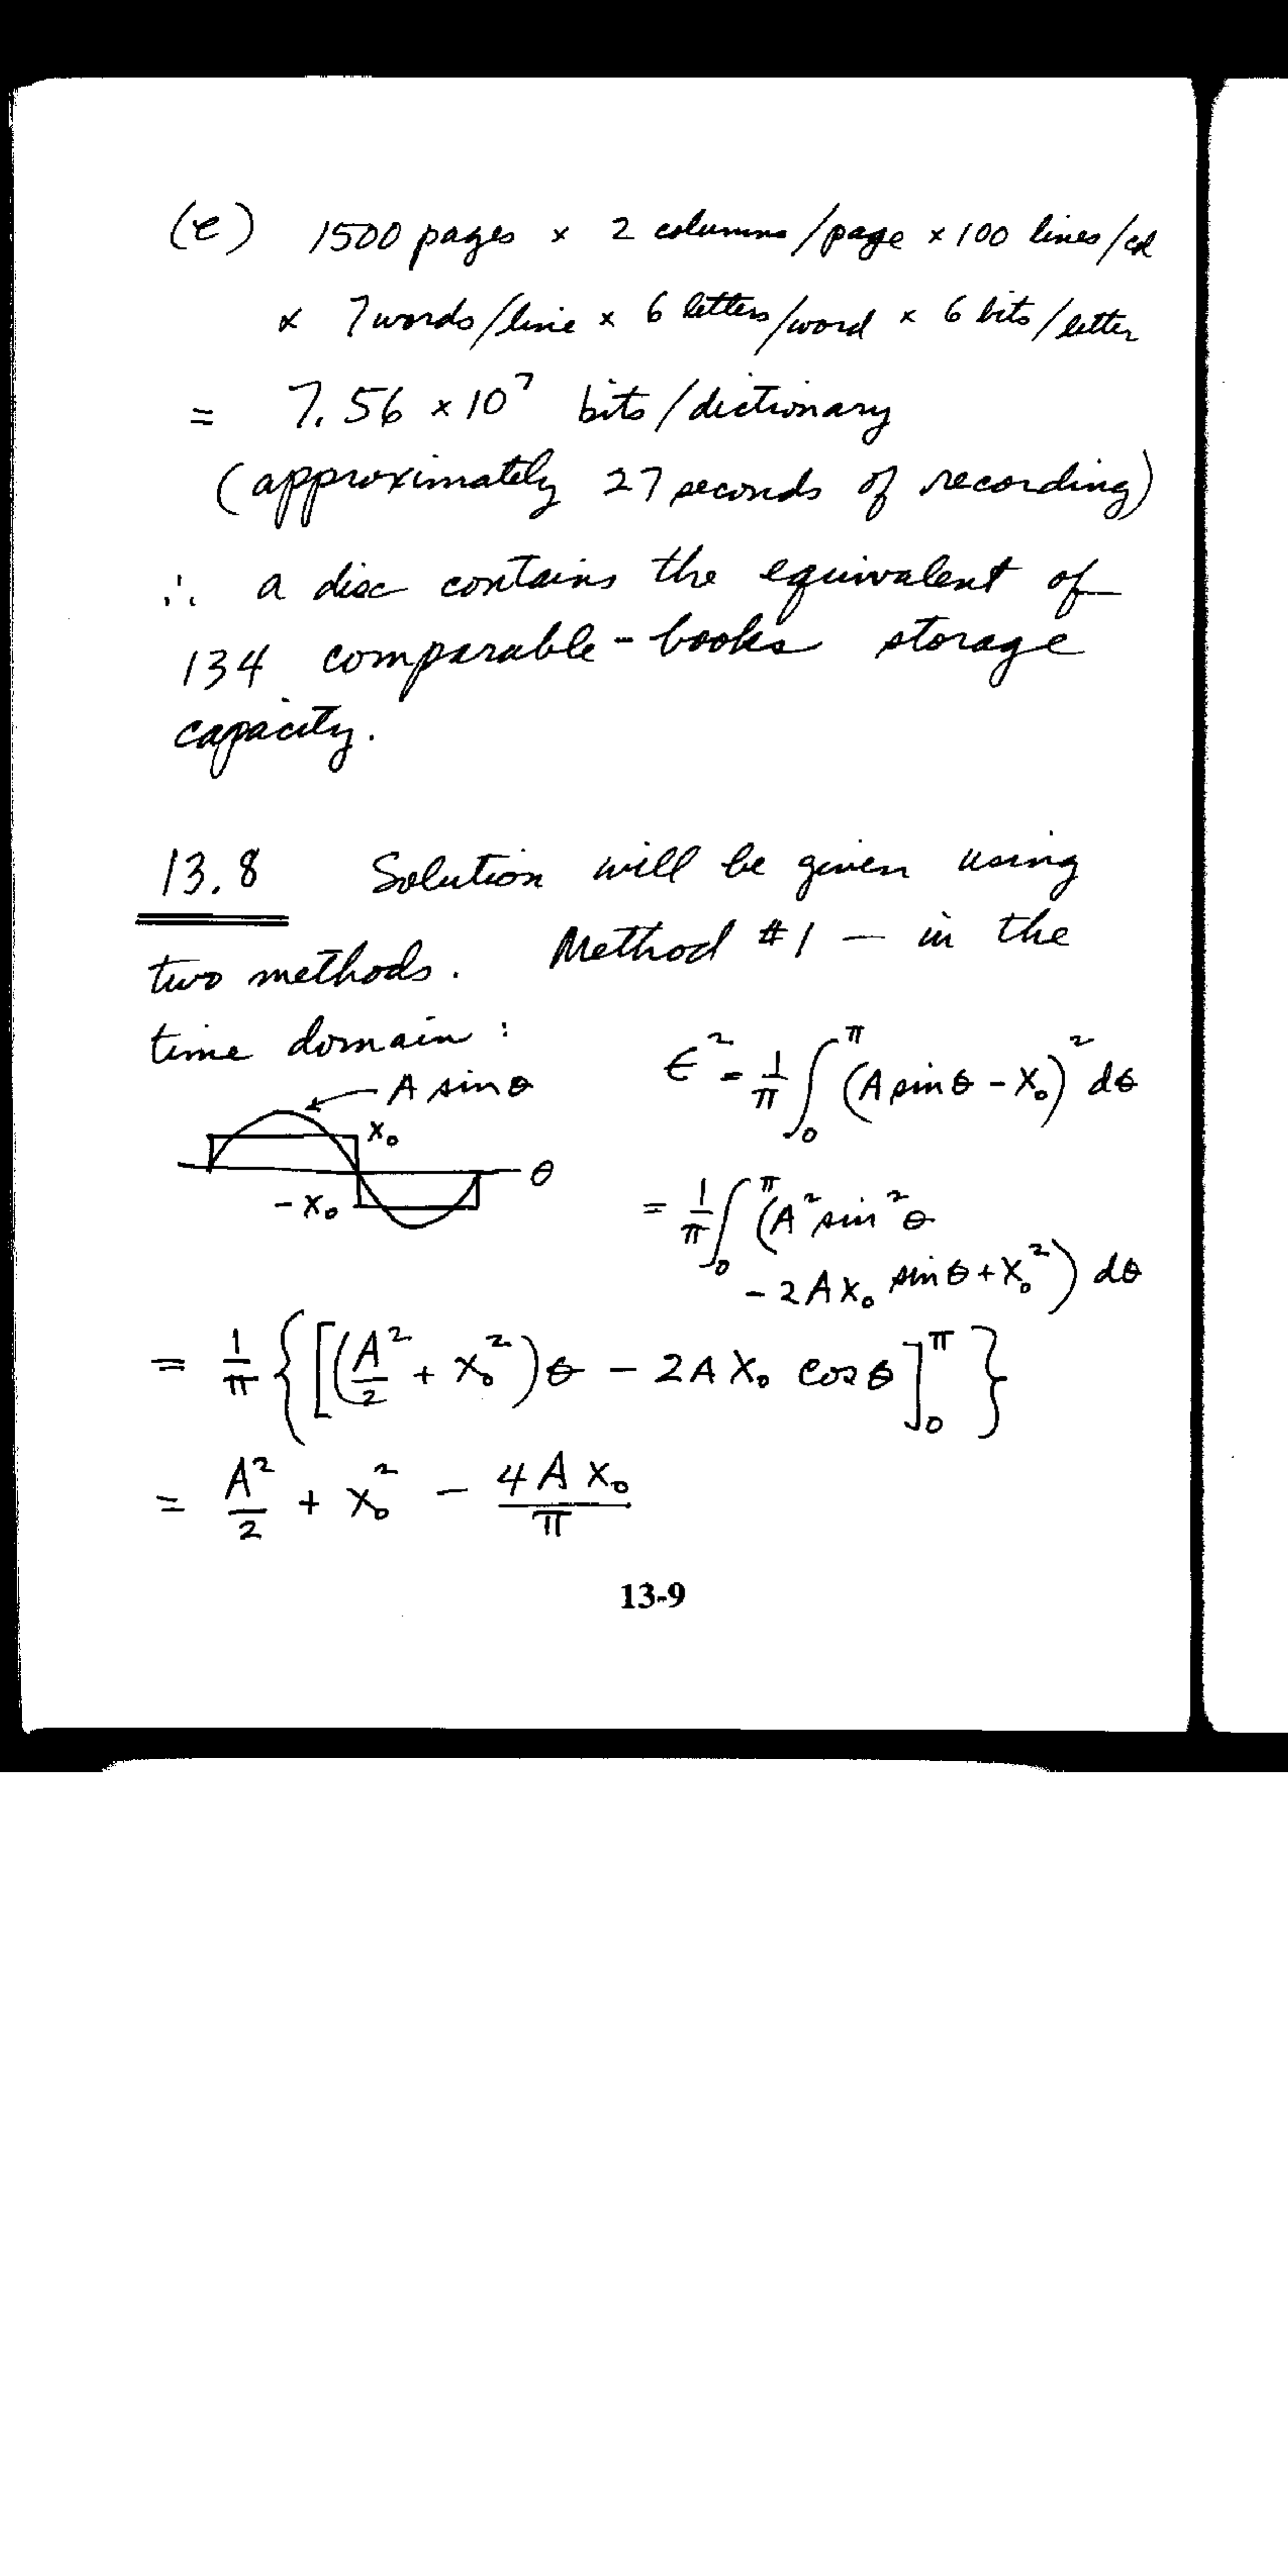 (e) 1500 pages × 2 columns/page × 100 lines/col
× 7 words/line × 6 letters/word × 6 bits/letter
= 7.56 × 10⁷ bits/dictionary
(approximately 27 seconds of recording)
∴ a disc contains the equivalent of
134 comparable-books storage
capacity.
13.8 Solution will be given using
two methods. Method #1 – in the
time domain:
A sin θ
x₀
θ
-x₀
ϵ² = 1/π ∫₀^π (A sin θ - x₀)² dθ
= 1/π ∫₀^π (A² sin² θ
- 2A x₀ sin θ + x₀²) dθ
= 1/π {[(A²/2 + x₀²)θ - 2A x₀ cos θ]₀^π}
= A²/2 + x₀² - 4A x₀/π
13-9